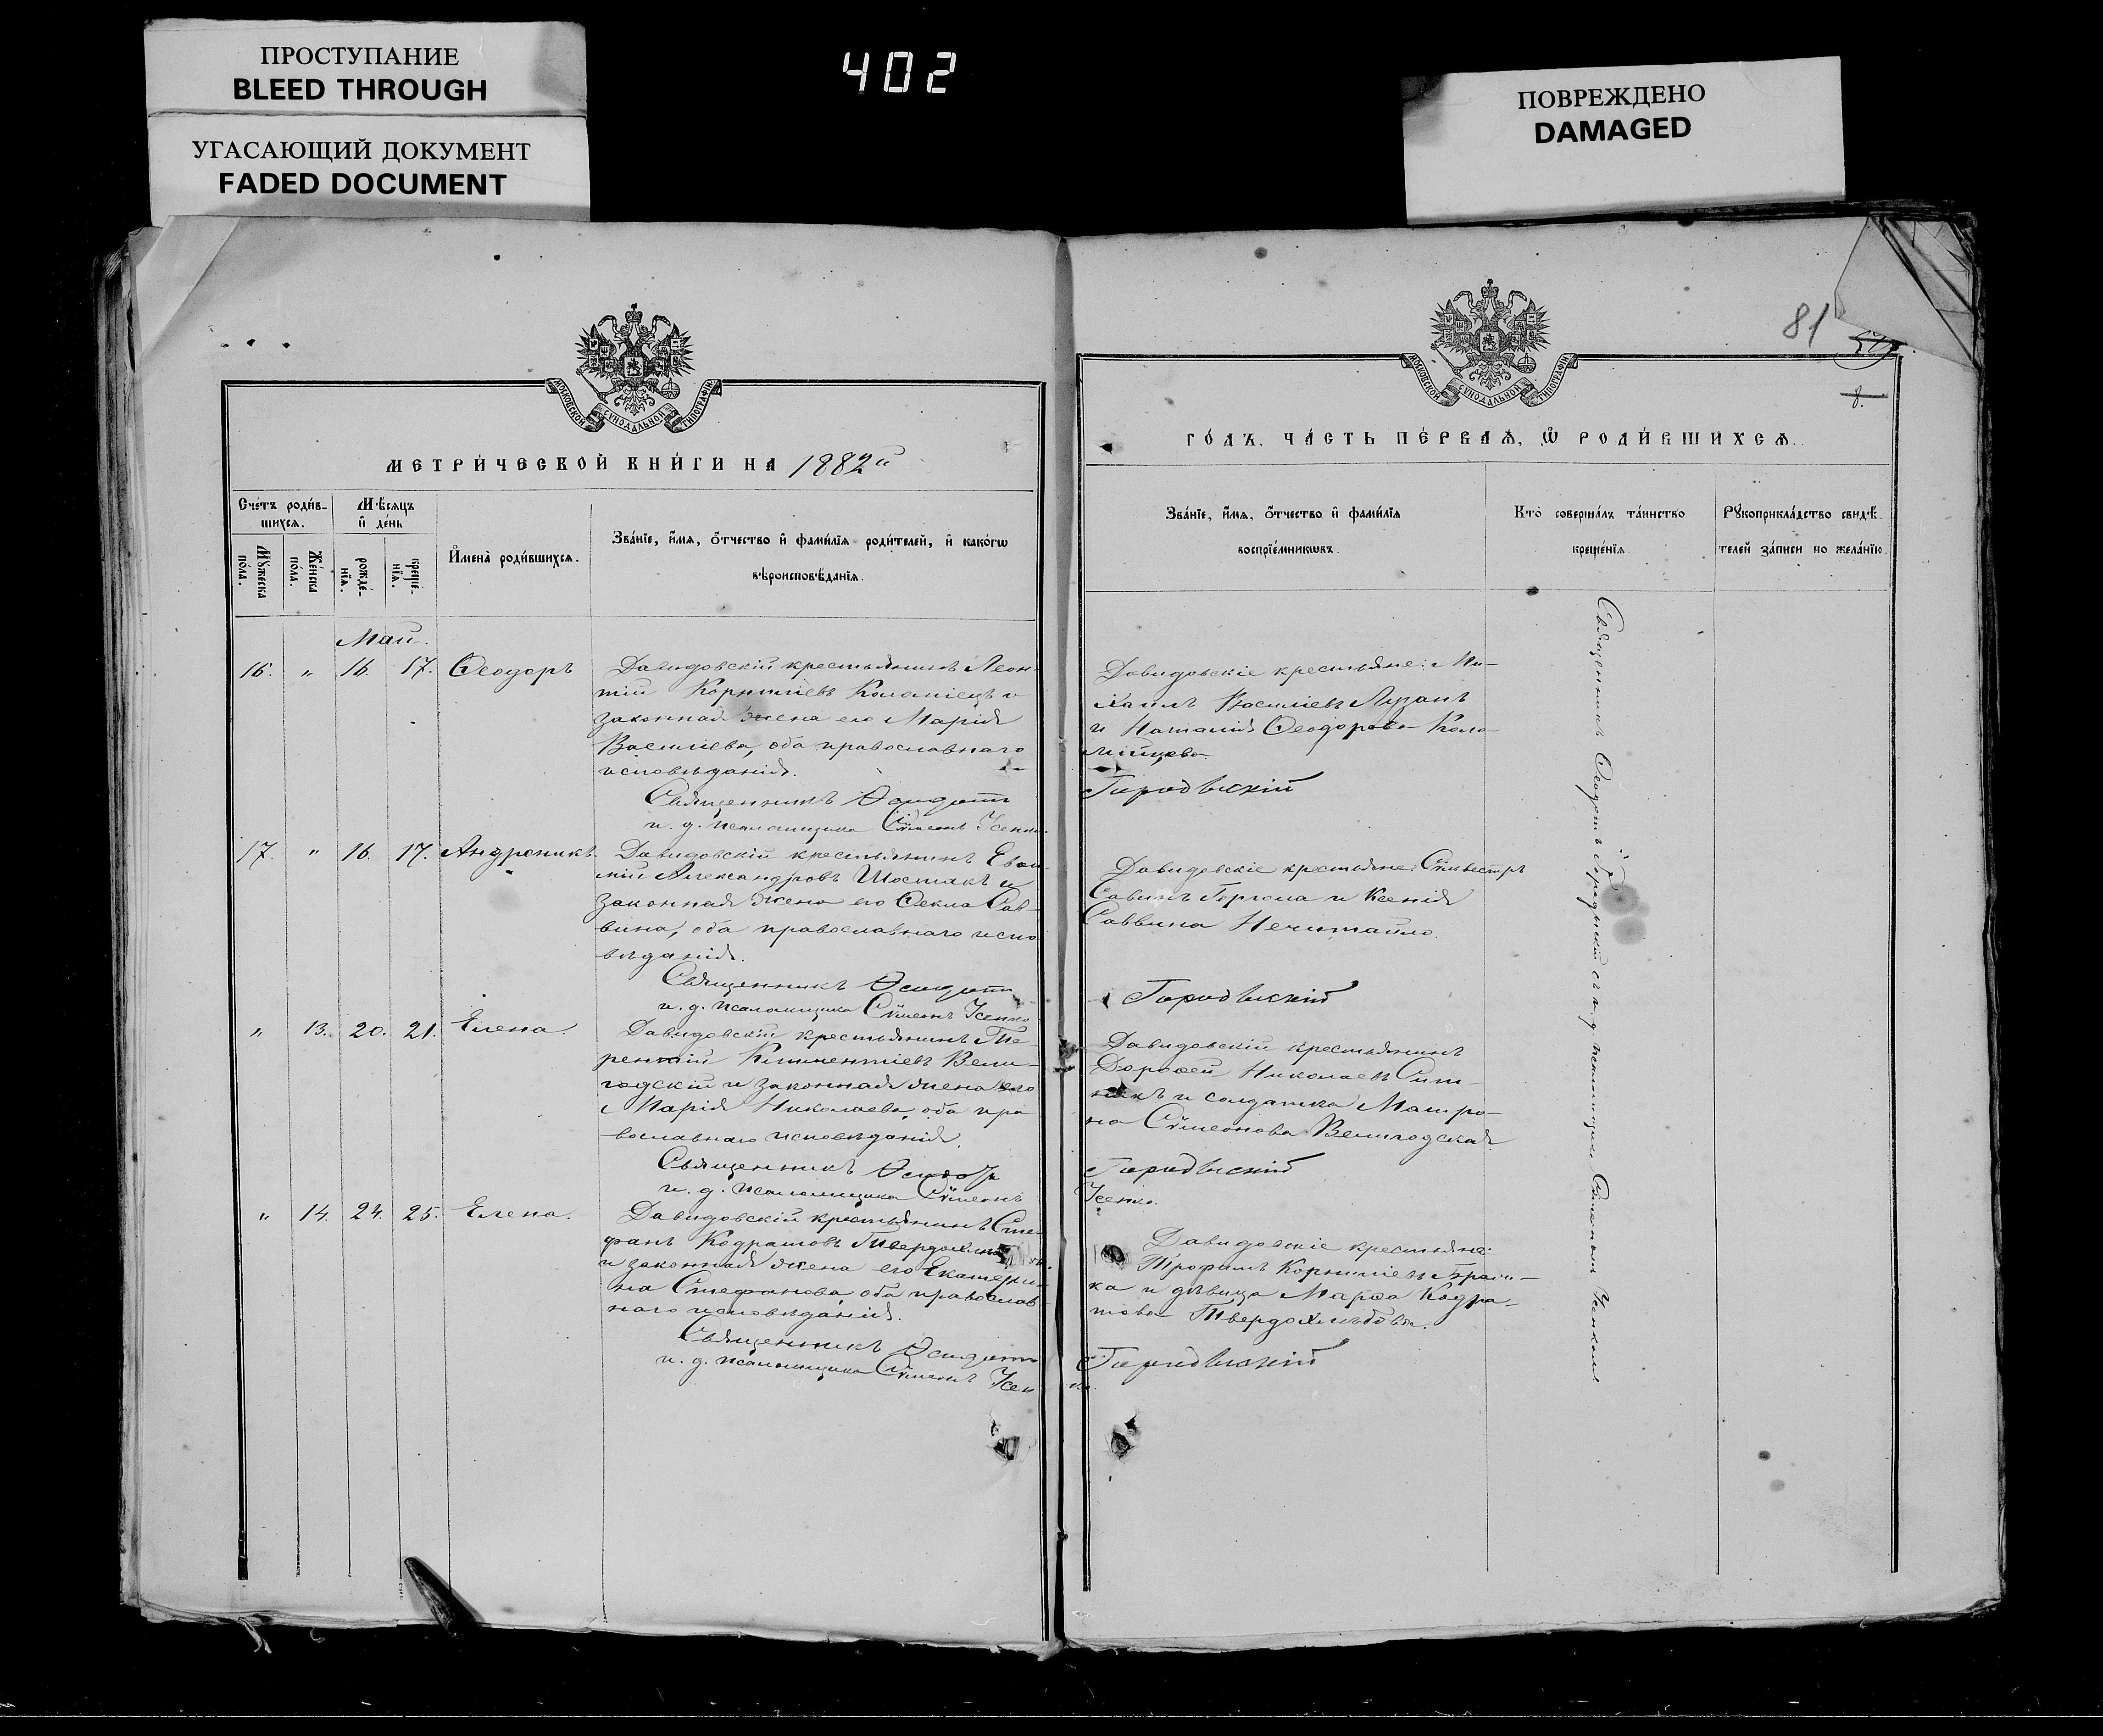 ПРОСТУПАНИЕ
BLEED THROUGH
УГАСАЮЩИЙ ДОКУМЕНТ
FADED DOCUMENT
402
ПОВРЕЖДЕНО
DAMAGED
МОСКОВСКОЙ СѴНОДАЛЬНОЙ ТИПОГРАФІИ
МЕТРИ́ЧЕСКОЙ КНИ́ГИ НА 1882й
Сче́тъ роди́в-
шихся.
Мѣ́сяцъ
и҆ де́нь
Мꙋ́жеска
по́ла.
Же́нска
по́ла.
рожде́-
нїѧ.
креще́-
нїѧ.
И҆мена̀ роди́вшихсѧ.
Зва́нїе, и҆́мѧ, ѻ҆́тчество и҆ фами́лїѧ роди́телей, и҆ како́гѡ
вѣроисповѣ́данїѧ.
Май.
16. " 16. 17. Ѳеодоръ
Давидовскій крестьянинъ Леон-
тій Корниліевъ Коломіецъ и
законная жена его Марія
Василіева, оба православнаго
исповѣданія.
Священникъ Ѳеодотъ
и. д. псаломщика Сѵмеонъ Усенко
17. " 16. 17. Андроникъ.
Давидовскій крестьянинъ Евѳи-
мій Александровъ Шостакъ и
законная жена его Ѳекла Сав-
вина, оба православнаго испо-
вѣданія.
Священникъ Ѳеодотъ
и. д. псаломщика Сѵмеонъ Усенко
" 13. 20. 21. Елена.
Давидовскій крестьянинъ Те-
рентій Климентіевъ Вели-
годскій и законная жена его
Марія Николаева, оба пра-
вославнаго исповѣданія.
Священникъ Ѳеодотъ
и. д. псаломщика Сѵмеонъ
" 14. 24. 25. Елена.
Давидовскій крестьянинъ Сте-
фанъ Кодратовъ
и законная жена его Екатери-
на Стефанова, оба православ-
наго исповѣданія.
Священникъ Ѳеодотъ
и. д. псаломщика Сѵмеонъ Усен
81
8.
МОСКОВСКОЙ СѴНОДАЛЬНОЙ ТИПОГРАФІИ
ГО́ДЪ, ЧА́СТЬ ПЕ́РВАѦ, Ѽ РОДИ́ВШИХСѦ.
Зва́нїе, и҆́мѧ, ѻ҆́тчество и҆ фами́лїѧ
воспрїе́мникѡвъ.
Кто̀ соверша́лъ та́инство
креще́нїѧ
Рꙋкоприкла́дство свидѣ́-
телей за́писи по жела́нїю
Давидовскіе крестьяне: Ми-
хаилъ Василіевъ Лузанъ
и Наталія Ѳеодорова Коло-
мійцева
Городыскій
Давидовскіе крестьяне: Сѵлвестръ
Савинъ и Ксенія
Саввина Нечитайло.
Городыскій
Давидовскій крестьянинъ
Дороѳей Николаевъ Сит-
никъ и солдатка Матро-
на Сѵмеонова Велигодская.
Городыскій
Усенко.
Давидовскіе крестьяне:
Трофимъ Корниліевъ
ка и дѣвица Марѳа Кодра-
това Твердохлѣбова.
Городыскій
ко.
Священникъ Ѳеодотъ Городыскій съ и. д. псаломщика Сѵмеономъ Усенкомъ